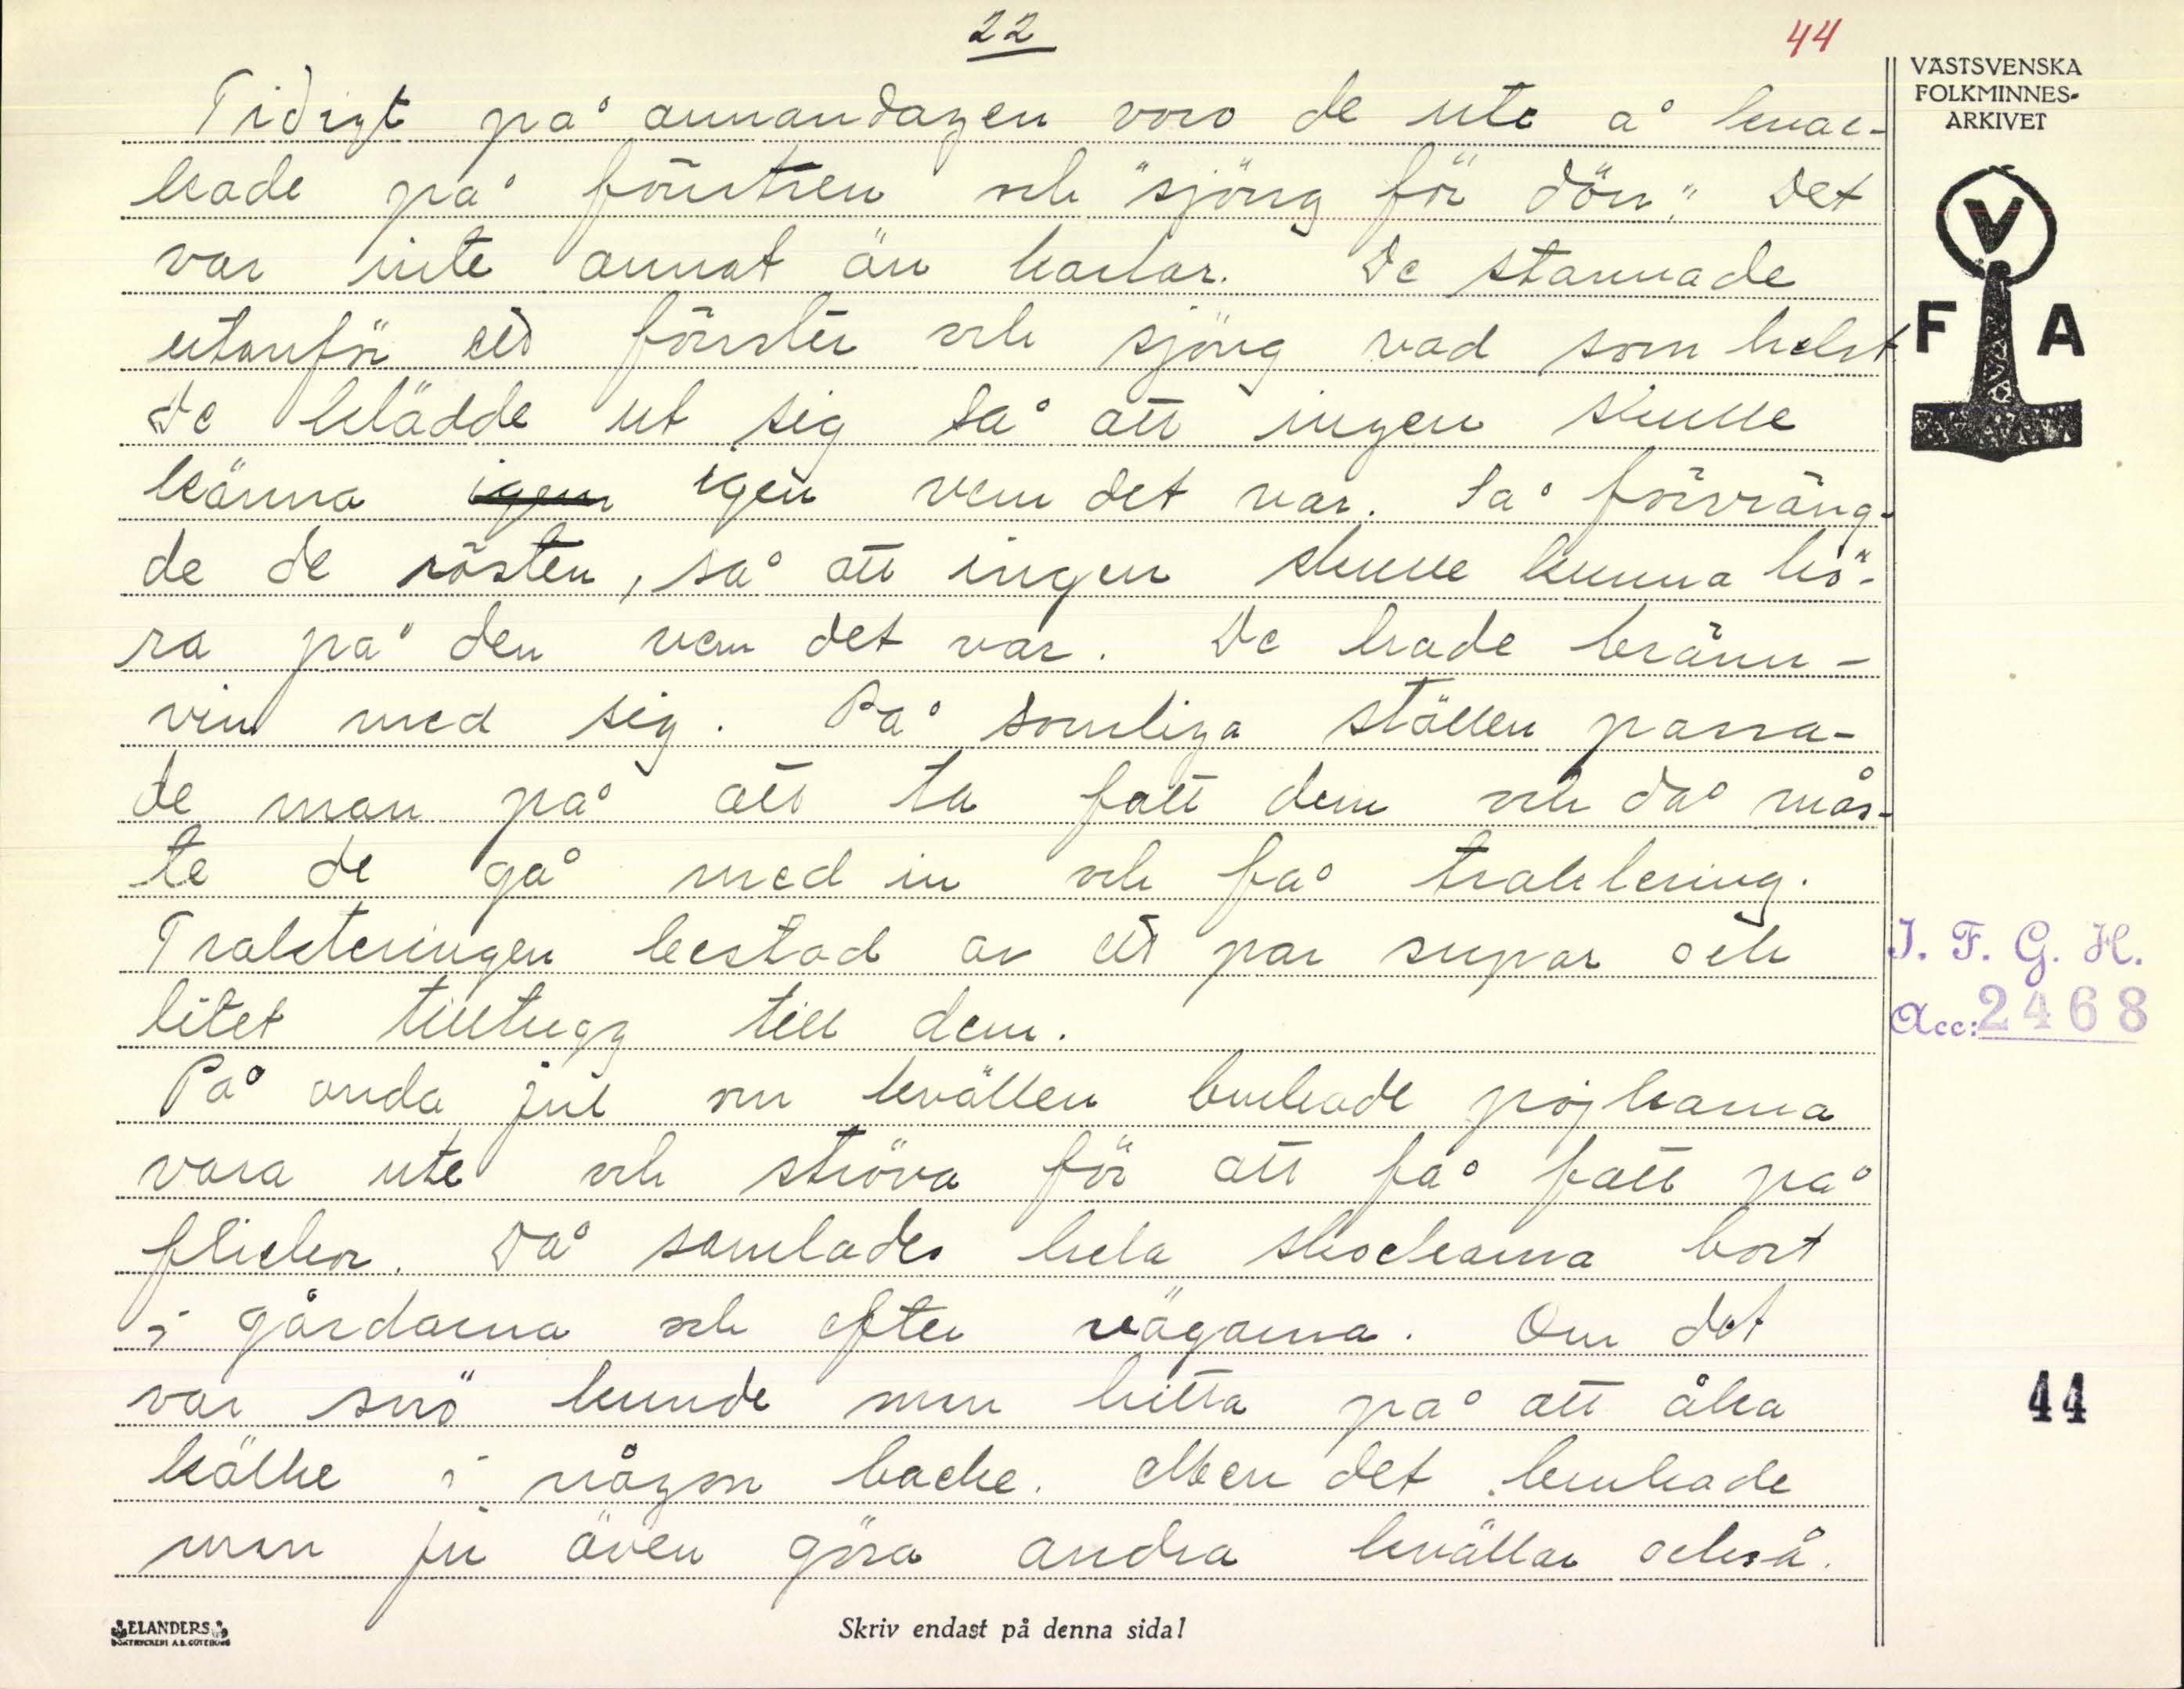 22
44
VÄSTSVENSKA
FOLKMINNES-
ARKIVET
Tidigt på annandagen voro de ute å knac-
kade på fönstren och "sjöng för dörr". Det
var inte annat än karlar. De stannade
utanför ett fönster och sjöng vad som helst
De klädde ut sig så att ingen skulle
känna igen igen vem det var. Så förväng-
de de rösten, så att ingen skulle kunna hö-
ra på den vem det var. De hade bränn-
vin med sig. På somliga ställen passa-
de man på att ta fatt dem och då mås-
te de gå med in och få traktering.
Trakteringen bestod av ett par supar och
litet tilltugg till dem.
På anda jul om kvällen brukade pojkarna
vara ute och ströva för att få fatt på
flickor. Då samlades hela skockarna bort
i gårdarna och efter vägarna. Om det
var snö kunde man hitta på att åka
kälke i någon backe. Men det brukade
man ju även göra andra kvällar också.
V
F A
I. F. G. H.
Acc: 2468
44
ELANDERS
BOKTRYCKERI A.B. GÖTEBORG
Skriv endast på denna sida!